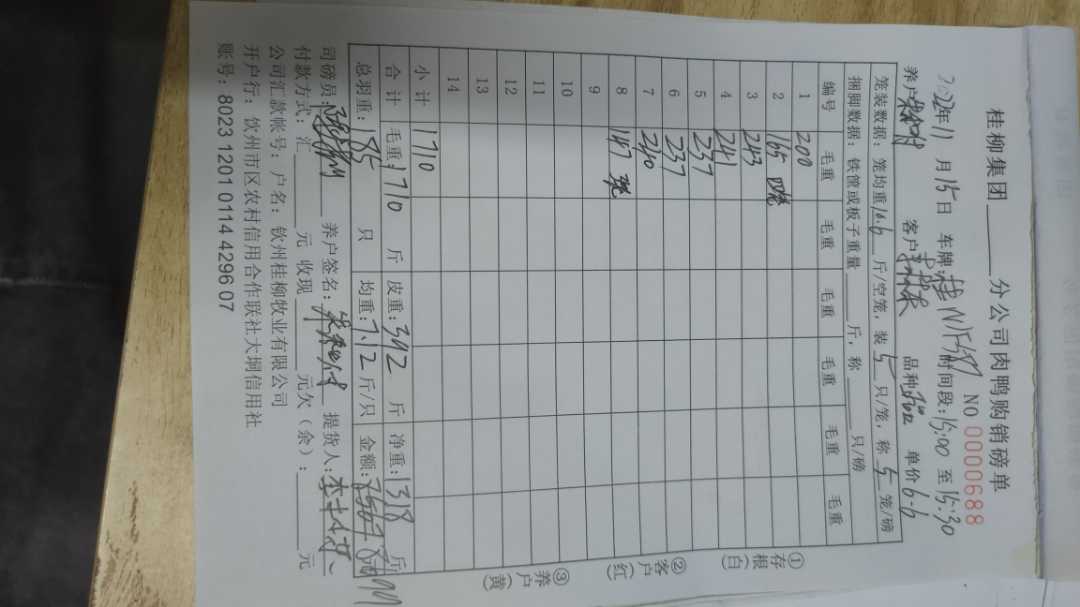 桂柳集团______分公司肉鸭购销磅单
NO 0000688
2022年11月15日 车牌:桂N 时间段:15:00 至 15:30
养户 客户 品种 单价6.6
笼装数据:笼均重10.6斤/空笼,装5只/笼,称5笼/磅
捆脚数据:铁筐或板子重量______斤,称______只/磅
编号 毛重 毛重 毛重 毛重 毛重 毛重
1 200
2 165 四笼
3 243
4 241
5 237
6 237
7 240
8 147
9
10
11
12
13
14
小计 1710
合计 毛重:1710 斤 皮重:392 斤 净重:1318 斤
总羽重:185 只 均重:7.12斤/只 金额:
司磅员: 养户签名: 提货人:
付款方式:汇______元 收现______元欠(余):______元
公司汇款帐号:户名:钦州桂柳牧业有限公司
开户行:钦州市区农村信用合作联社大垌信用社
账号:8023 1201 0114 4296 07
①存根(白)
②客户(红)
③养户(黄)